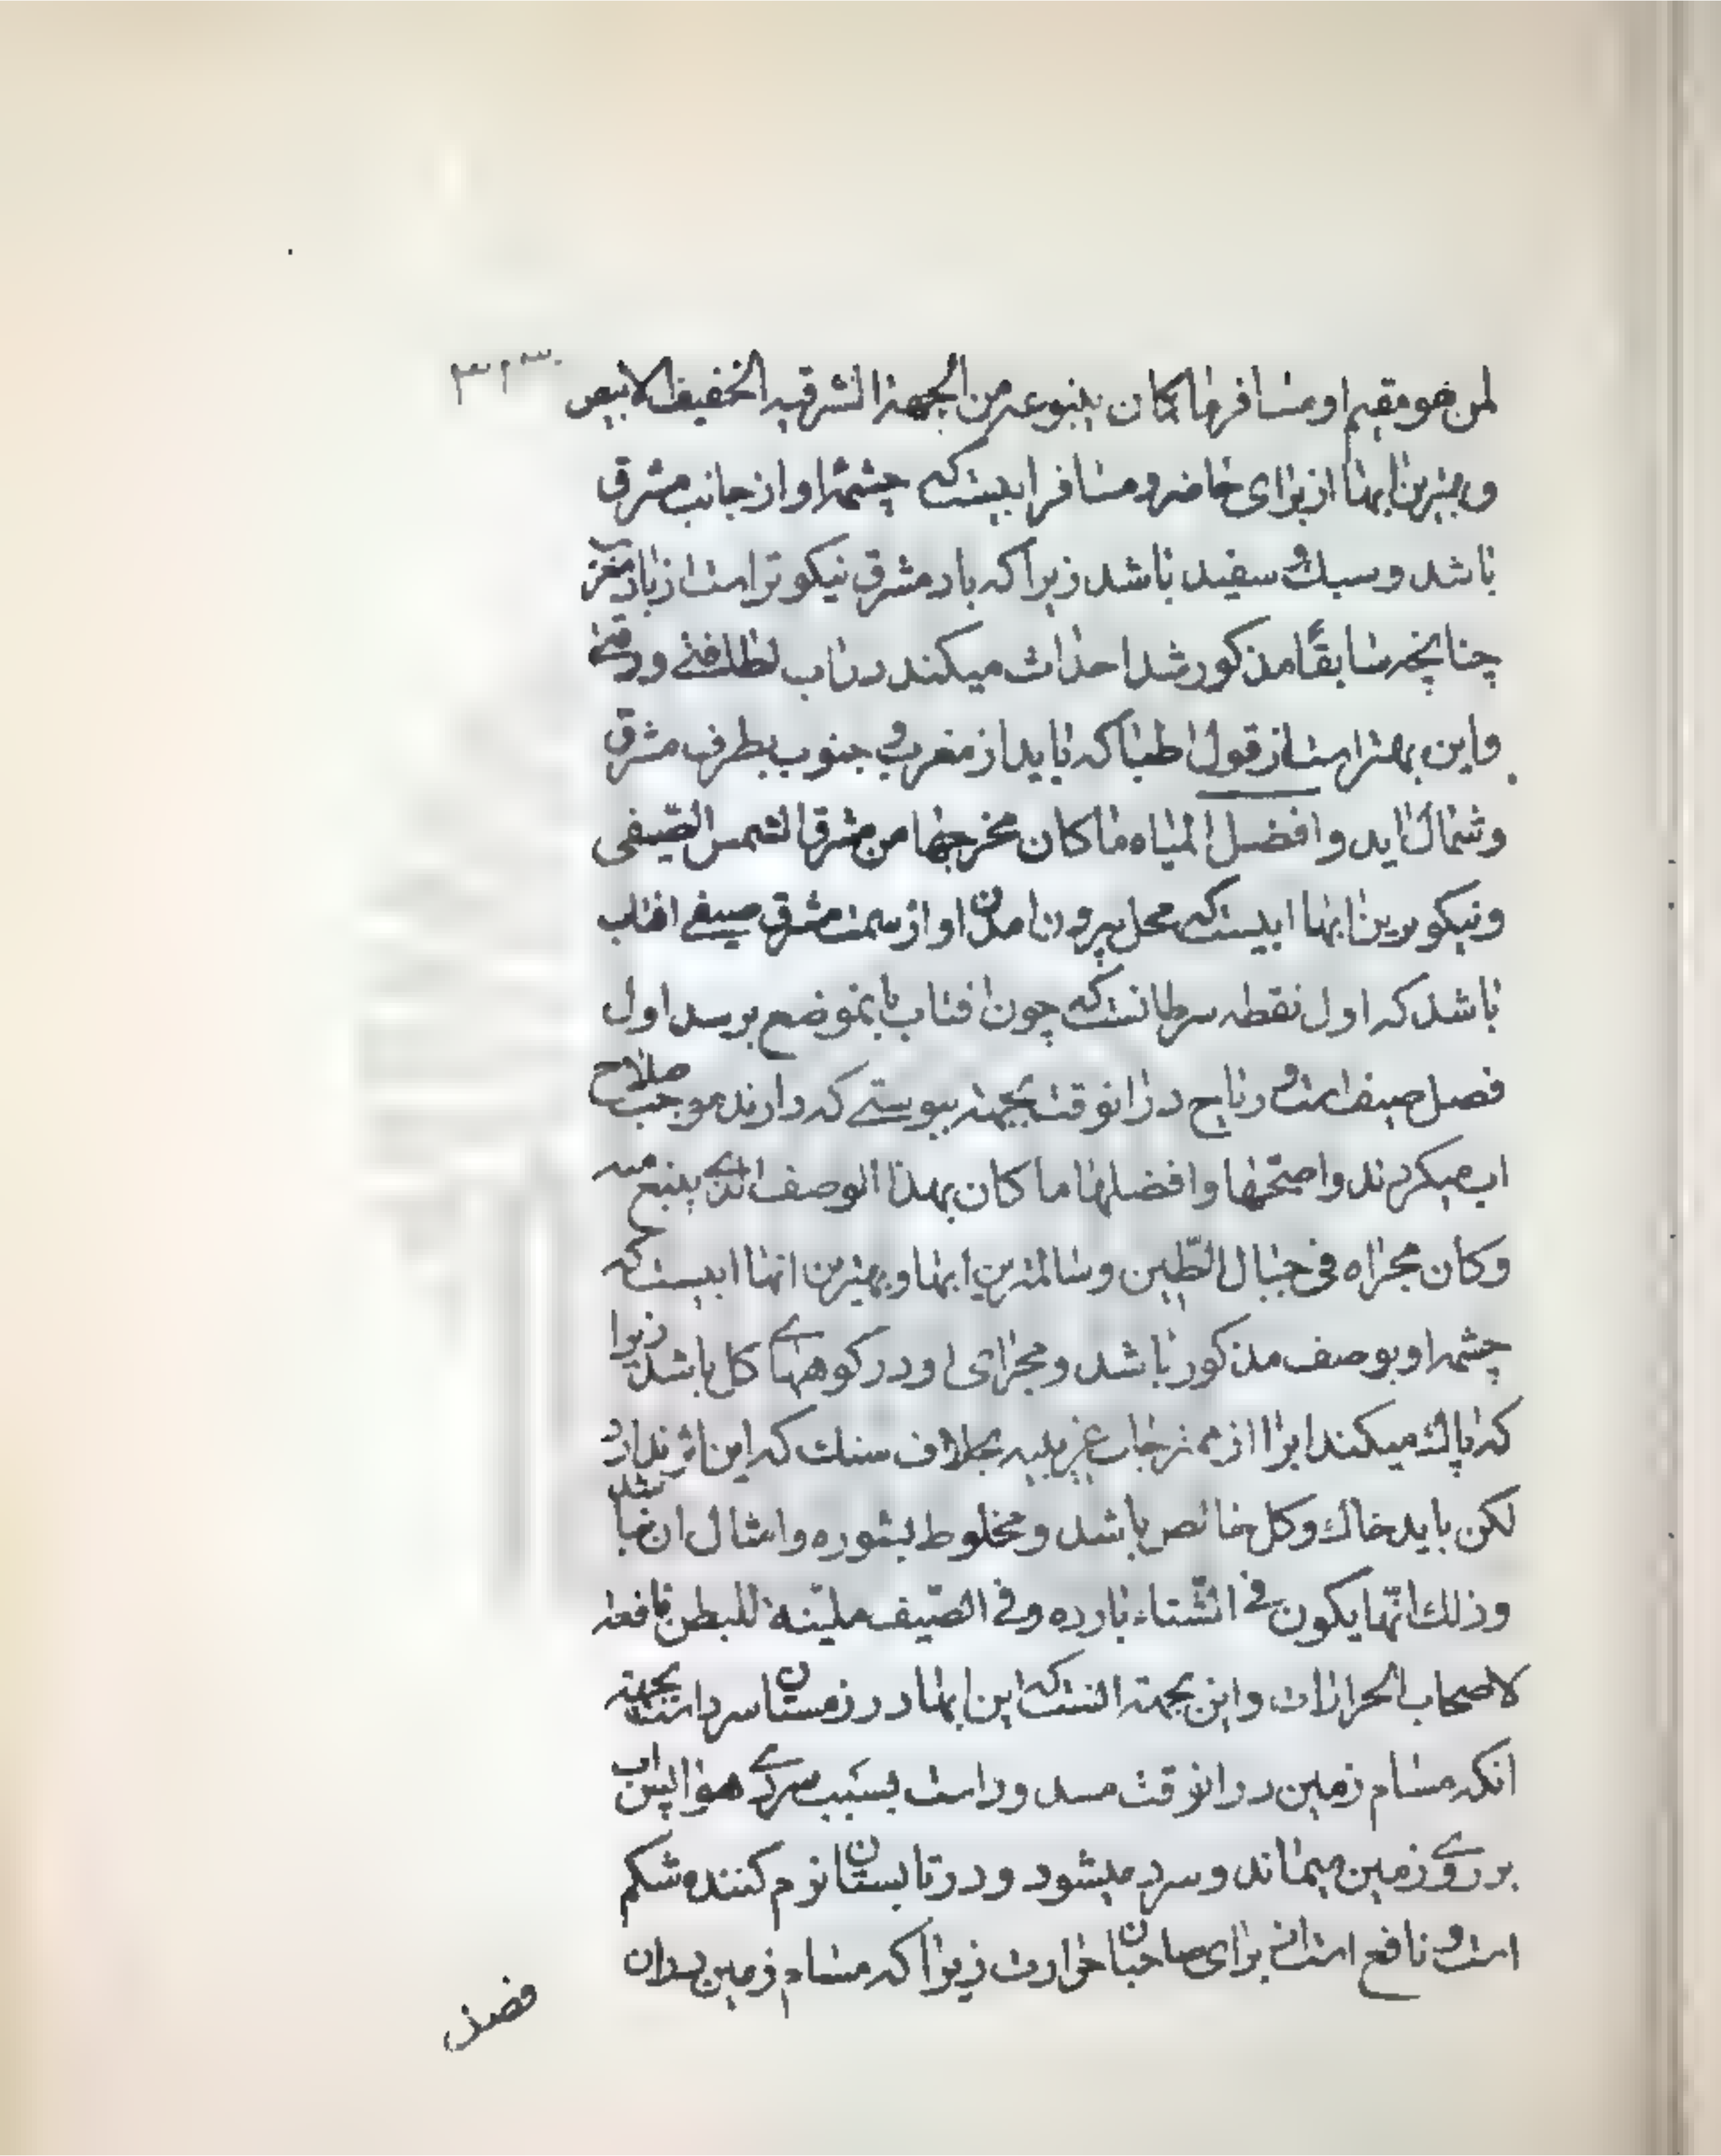 ۳۱۳
لمن هو مقیم او مسافر ما کان ینبوعه من الجهة الشرقیه الخفیف الابیض
و بهترین ابها از برای حاضر و مسافر ابیست که چشمه او از جانب مشرق
باشد و سبک و سفید باشد زیرا که باد مشرق نیکو تر است از باد مغرب
چنانچه سابقًا مذکور شد احداث میکند در اب لطافتی و رقتی
واین بهتر است از قول اطبا که باید از مغرب و جنوب بطرف مشرق
و شمال اید و افضل المیاه ما کان مخرجها من مشرق الشمس الصّیفی
و نیکو ترین ابها ابیست که محل بیرون امدن او از سمت مشرق صیفی افتاب
باشد که اول نقطه سرطانست که چون افتاب بانموضع برسد اول
فصل صیف است و ریاح در انوقت بجهته یبوستی که دارند موجب صلاح
اب میکردند واصحّها وافضلها ما کان بهذا الوصف الذی ینبع منه
وکان مجراه فی جبال الطّین و سالمترین ابها و بهترین انها ابیست که
چشمه او بوصف مذکور باشد و مجرای او در کوههای کل باشد زیرا
که پاک میکند ابرا از ممتزجات غریبه بخلاف سنک که این اثر ندارد
لکن باید خاک و کل خالص باشد و مخلوط بشوره و امثال ان نباشد
وذلک انّها یکون فی الشّتاء بارده وفی الصّیف ملیّنة للبطن نافعه
لاصحاب الحرارات و این بجهته انست که این ابها در زمستان سرد است بجهته
انکه مسام زمین در انوقت مسدود است بسبب سردی هوا پس اب
بر روی زمین میماند و سرد میشود و در تابستان نرم کننده شکم
است و نافع است از برای صاحبان حرارت زیرا که مسام زمین بدان
فصل